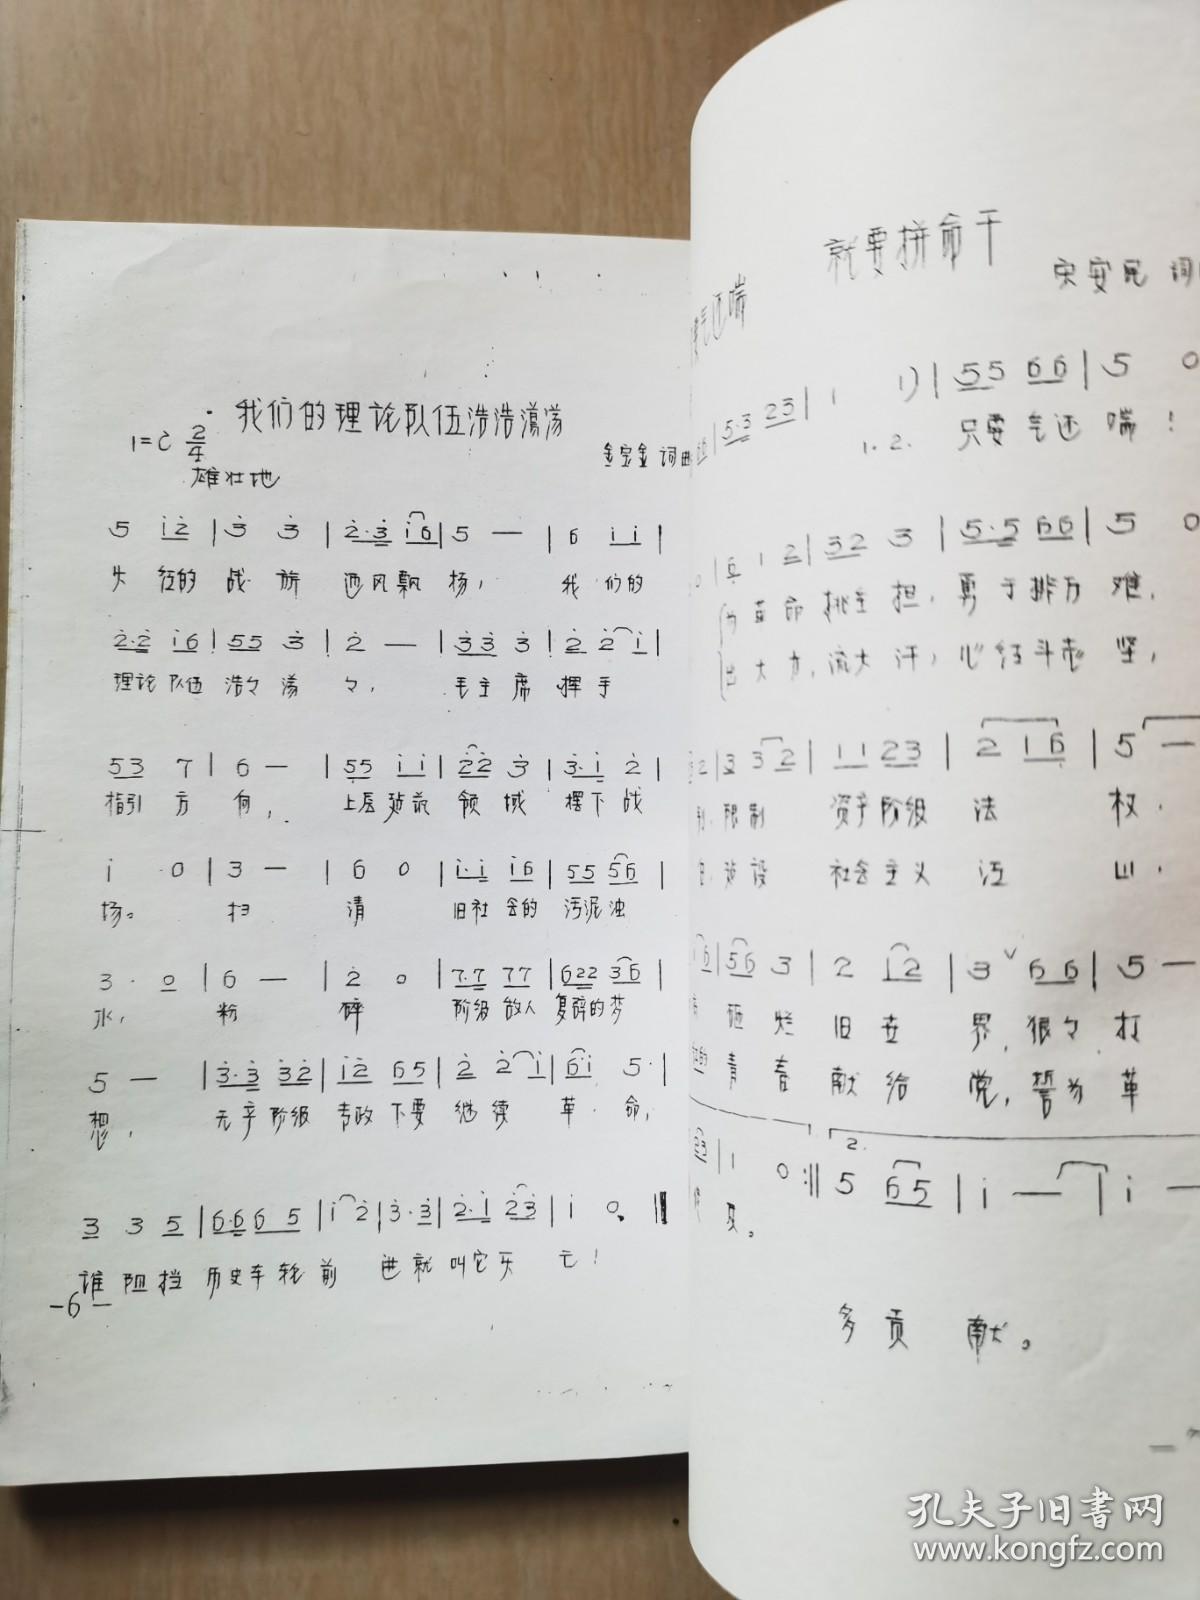 我们的理论队伍浩浩蕩蕩
1=C 2/4
雄壮地
金宝金 词曲
5 i2 | 3 3 | 2·3 i6 | 5 — | 6 i i |
火 红的 战 旗 迎风飘 扬， 我 们的
2·2 i6 | 55 3 | 2 — | 33 3 | 2 2 i |
理论 队伍 浩々 荡 々， 毛主 席 挥 手
53 7 | 6 — | 55 i i | 22 3 | 3·i 2 |
指引 方 向， 上层 领 域 摆下 战
i 0 | 3 — | 6 0 | i·i i6 | 55 56 |
场。 扫 清 旧社 会的 污泥 浊
3· 0 | 6 — | 2 0 | 7·7 77 | 622 36 |
水， 粉 碎 阶级 敌人 复辟的 梦
5 — | 3·3 32 | i2 65 | 2 2 i | 6i 5· |
想， 无产 阶级 专政 下要 继续 革 命，
3 3 5 | 6·6 6 5 | i 2 | 3·3 | 2·i 23 | i 0 ‖
谁 阻 挡 历史车 轮 前 进 就 叫它 灭 亡！
-6-
就要拼命干
宋安民 词
要气还喘
5·3 23 | 1 1) | 55 66 | 5 0
1. 2. 只要 气还 喘！
1 2 | 32 3 | 5·5 66 | 5 0
为 革 命 挑重 担， 勇于排万 难，
出 大 力，流大 汗， 心红斗志 坚，
2 | 3 32 | 11 23 | 2 16 | 5 —
限制 资产阶级 法 权，
建设 社会主义 江 山，
i6 | 56 3 | 2 12 | 3 66 | 5 —
砸 烂 旧 世 界，狠々 打
青 春 献 给 党，誓为 革
23 | 1 0 :‖ 2. 5 65 | i — | i —
及。
多 贡 献。
孔夫子旧书网
www.kongfz.com